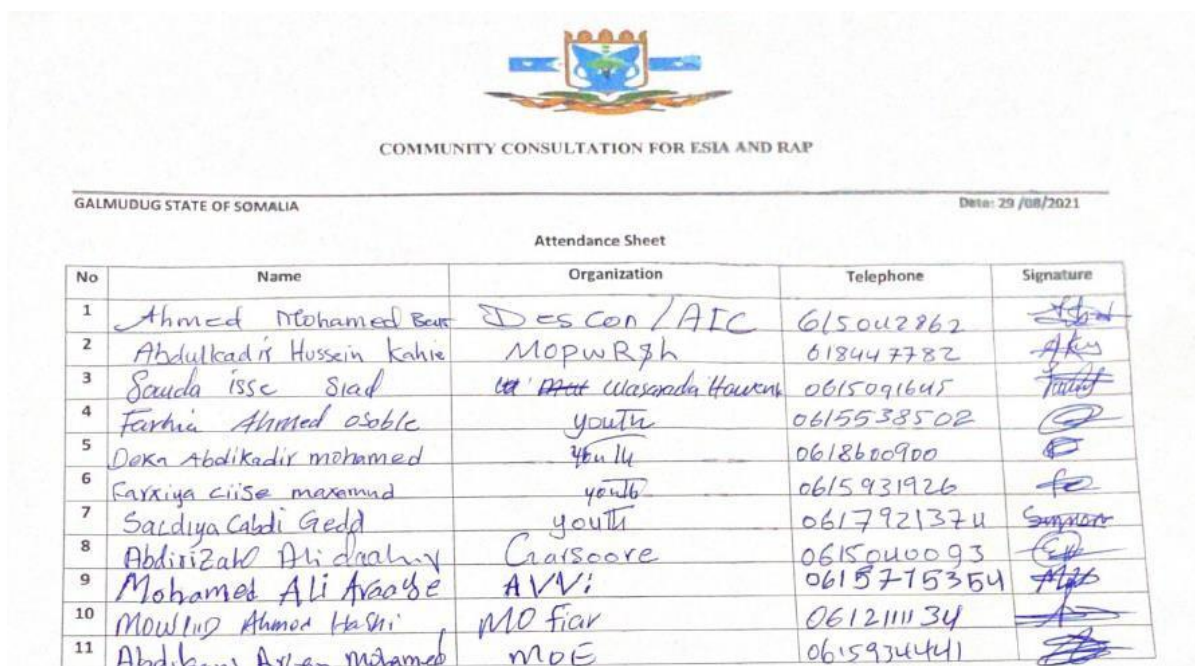 COMMUNITY CONSULTATION FOR ESIA AND RAP
GALMUDUG STATE OF SOMALIA Date: 29 /08/2021
Attendance Sheet
No Name Organization Telephone Signature
1 Ahmed Mohamed DesCon/AIC 615042862
2 Abdulkadir Hussein Kahie MOPWR$h 618447782
3 Sauda isse Siad Wasarada 0615091645
4 Farhia Ahmed osoble youth 0615538502
5 Deka Abdikadir mohamed youth 0618600900
6 Farxiya ciise maxamud youth 0615931926
7 Sacdiya Cabdi Gedd youth 0617921374
8 Ali Gaarsoore 0615040093
9 Mohamed Ali AVVi 0615775354
10 Ahmed Hashi MO 0612111134
11 Mohamed MOE 0615934441